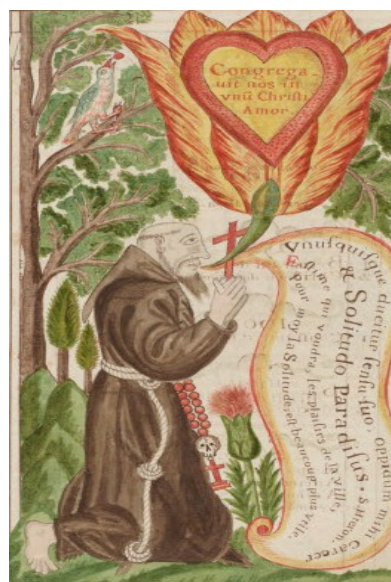 Congrega-
uit nos in
vnũ Christi
Amor.
Vnuſquiſque ducitur ſenſu ſuo, oppidum mihi Carcer
& Solitudo Paradiſus. S. Hieron.
Eſtime qui voudra, les plaiſirs de la Ville,
Pour moy la Solitude, eſt beaucoup plus vtile.